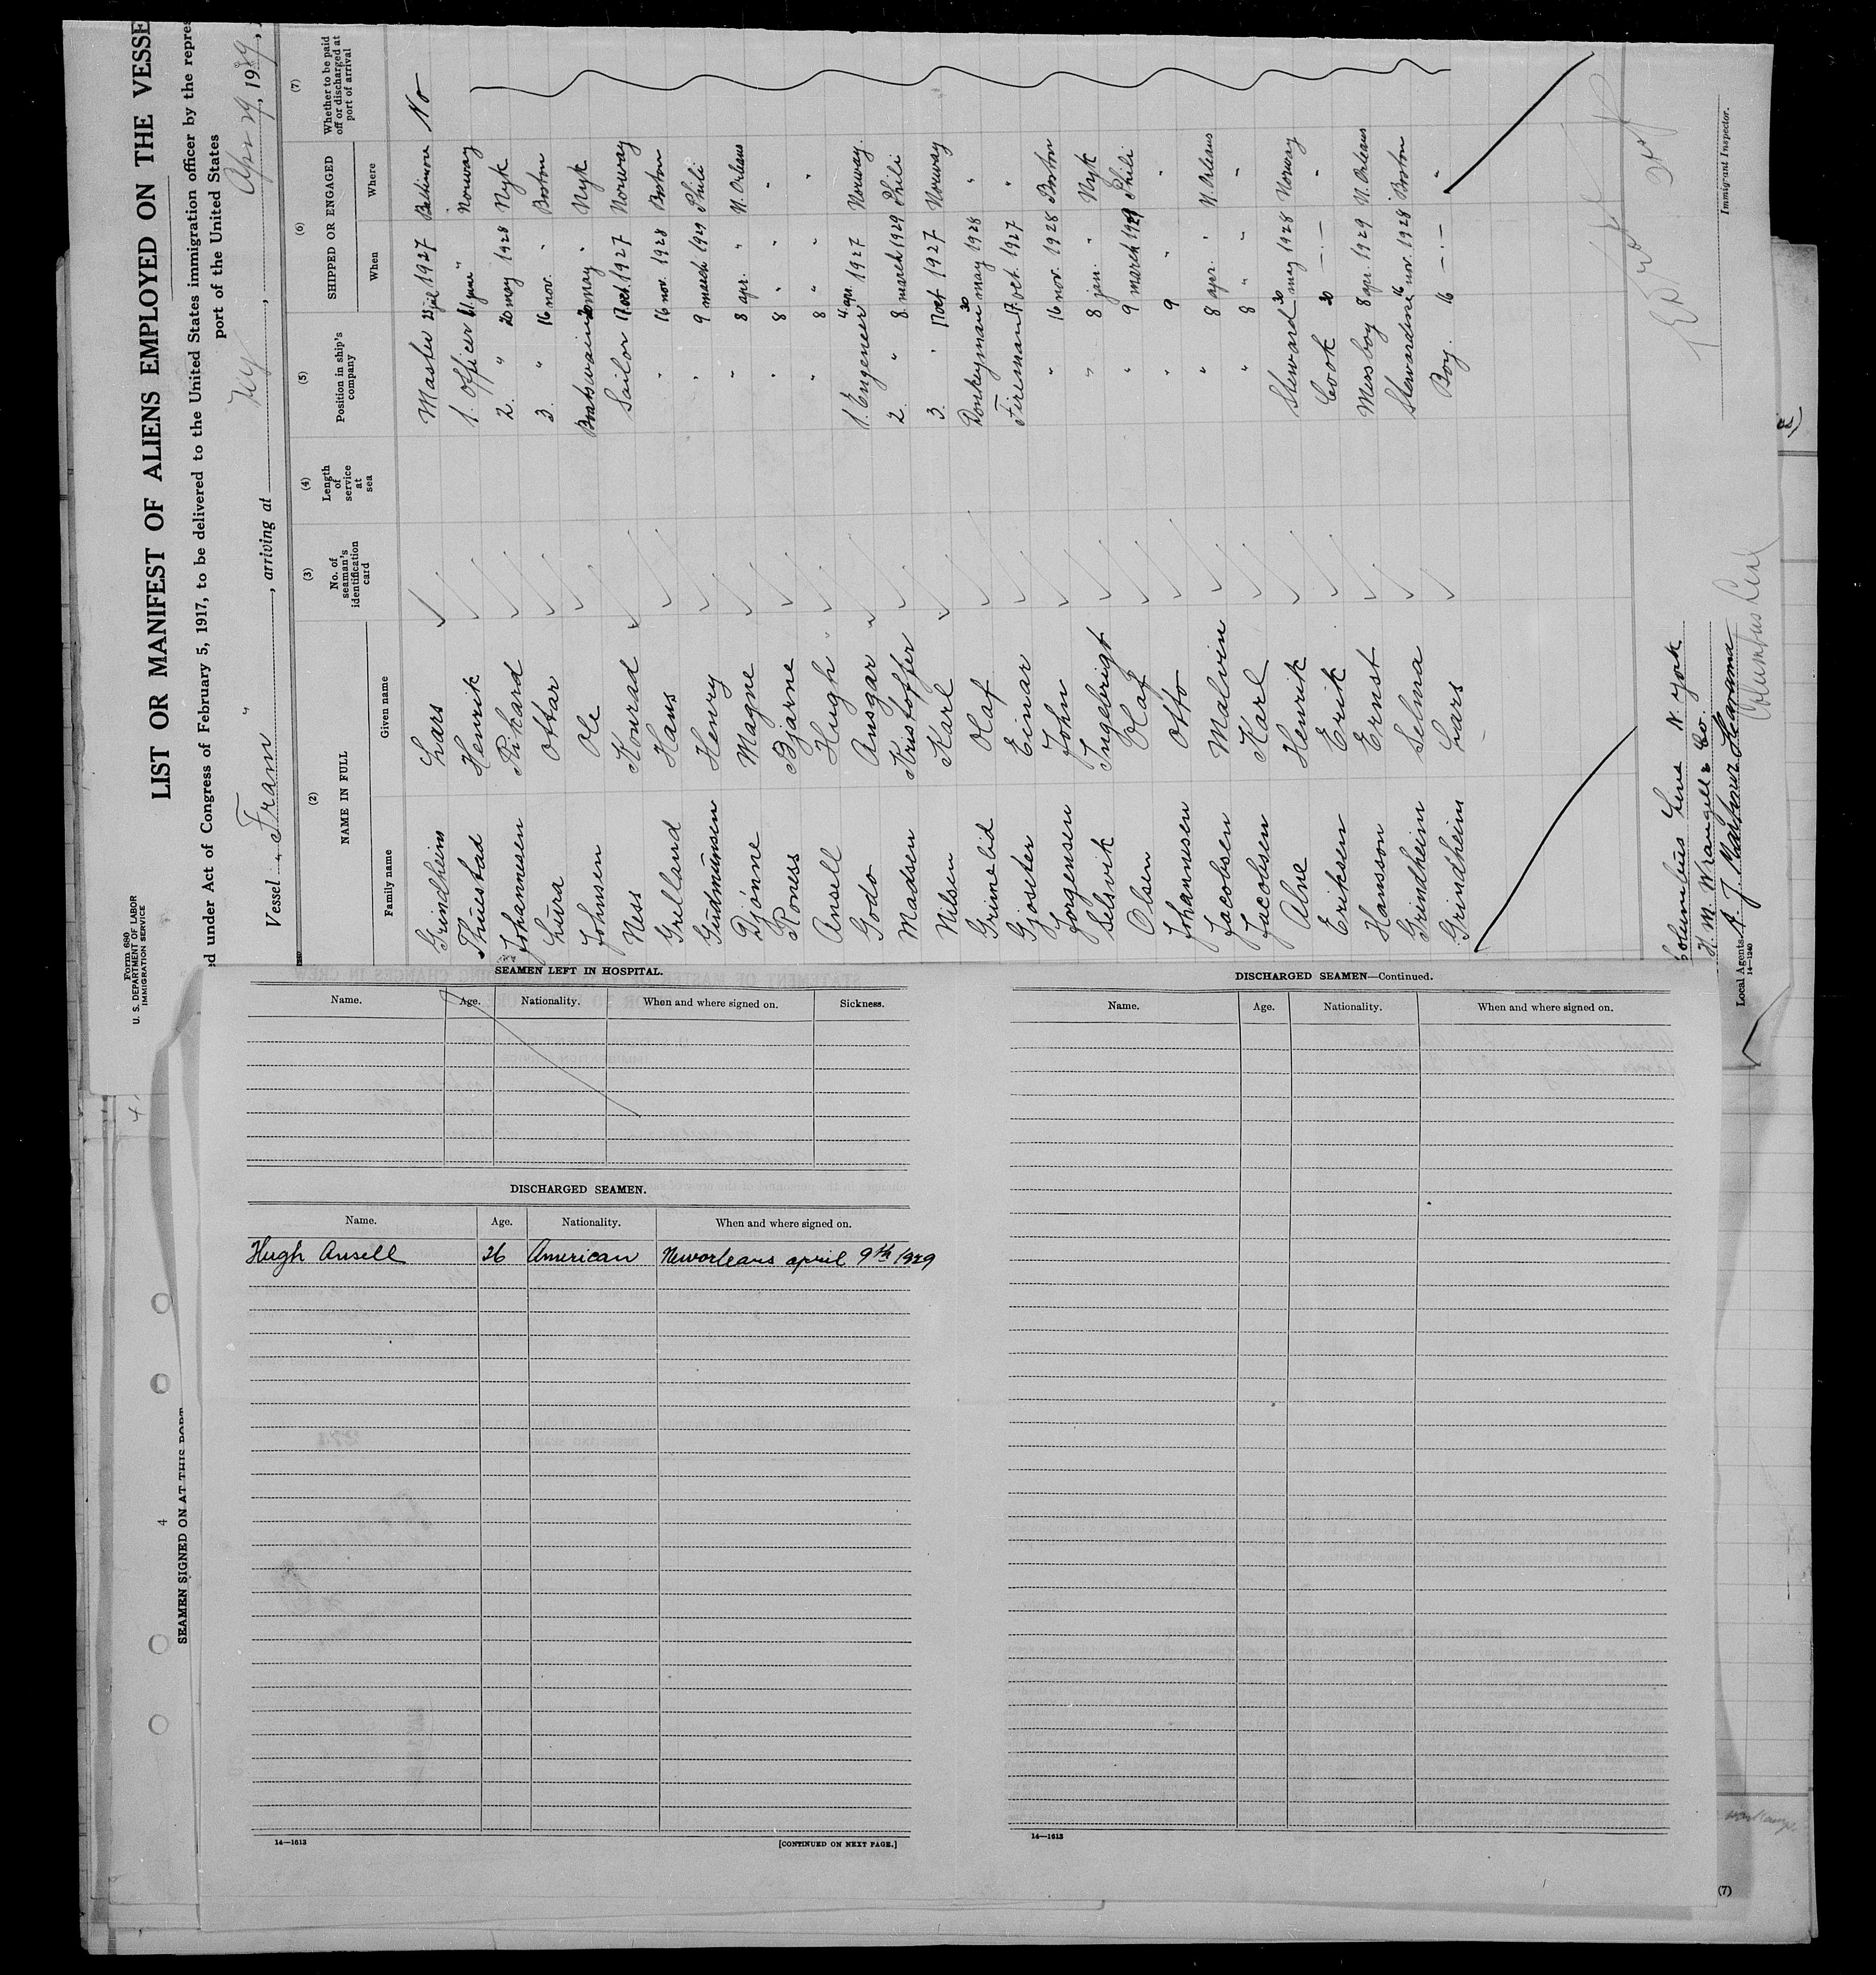 Form 680
U. S. DEPARTMENT OF LABOR
IMMIGRATION SERVICE
LIST OR MANIFEST OF ALIENS EMPLOYED ON THE VESSE
d under Act of Congress of February 5, 1917, to be delivered to the United States immigration officer by the repres
port of the United States
Vessel „Fram", arriving at , Apr 29, 1929,
(2) (3) (4) (5) (6) (7)
NAME IN FULL No. of seaman's identification card Length of service at sea Position in ship's company SHIPPED OR ENGAGED Whether to be paid off or discharged at port of arrival
Family name Given name When Where
Grindheim Lars Master 1927 Baltimore No
Thuestad Henrik 1. Officer 11 june " Norway
Johannesen Rikard 2. " 20 may 1928 Nyk
Lura Ottar 3. " 16 nov. " Boston
Johnsen Ole Boatswain 20 may " Nyk
Ness Konrad Sailor 17 oct. 1927 Norway
Grelland Hans " 16 nov. 1928 Boston
Gudmunsen Henry " 9 march 1929 Phili
Djønne Magne " 8 apr. " N. Orleans
Roness Bjarne " 8 " "
Ansell Hugh " 8 " "
Godo Ansgar 1. Engeneer 4 apr. 1927 Norway
Madsen Kristoffer 2. " 8 march 1929 Phili
Nilsen Karl 3. " 17 oct 1927 Norway
Grinnebid Olaf Donkeyman 30 may 1928 "
Gjoseter Einar Fireman 17 oct. 1927 "
Jorgensen John " 16 nov. 1928 Boston
Selsvik Ingebrigt " 8 jan. " Nyk
Olsen Olaf " 9 march 1929 Phili
Johannesen Otto " 9 " "
Jacobsen Malvin " 8 apr. " N. Orleans
Jacobsen Karl " 8 " "
Alne Henrik Steward 20 may 1928 Norway
Eriksen Erik Cook 20 –"– "
Hansson Ernst Messboy 8 apr. 1929 N. Orleans
Grindheim Selma Stewardine 16 nov. 1928 Boston
Grindheim Lars Boy. 16 –"– "
Columbus Line N. York
H. M. Wrangell & Co.
Local Agents A. J. Martinez Havana
Columbus Line
14—1240
Immigrant Inspector.
SEAMEN LEFT IN HOSPITAL.
Name. Age. Nationality. When and where signed on. Sickness.
DISCHARGED SEAMEN.
Name. Age. Nationality. When and where signed on.
Hugh Ansell 26 American Neworleans april 9th 1929
14—1613 [CONTINUED ON NEXT PAGE.]
DISCHARGED SEAMEN—Continued.
Name. Age. Nationality. When and where signed on.
14—1613
4
SEAMEN SIGNED ON AT THIS PORT
(7)